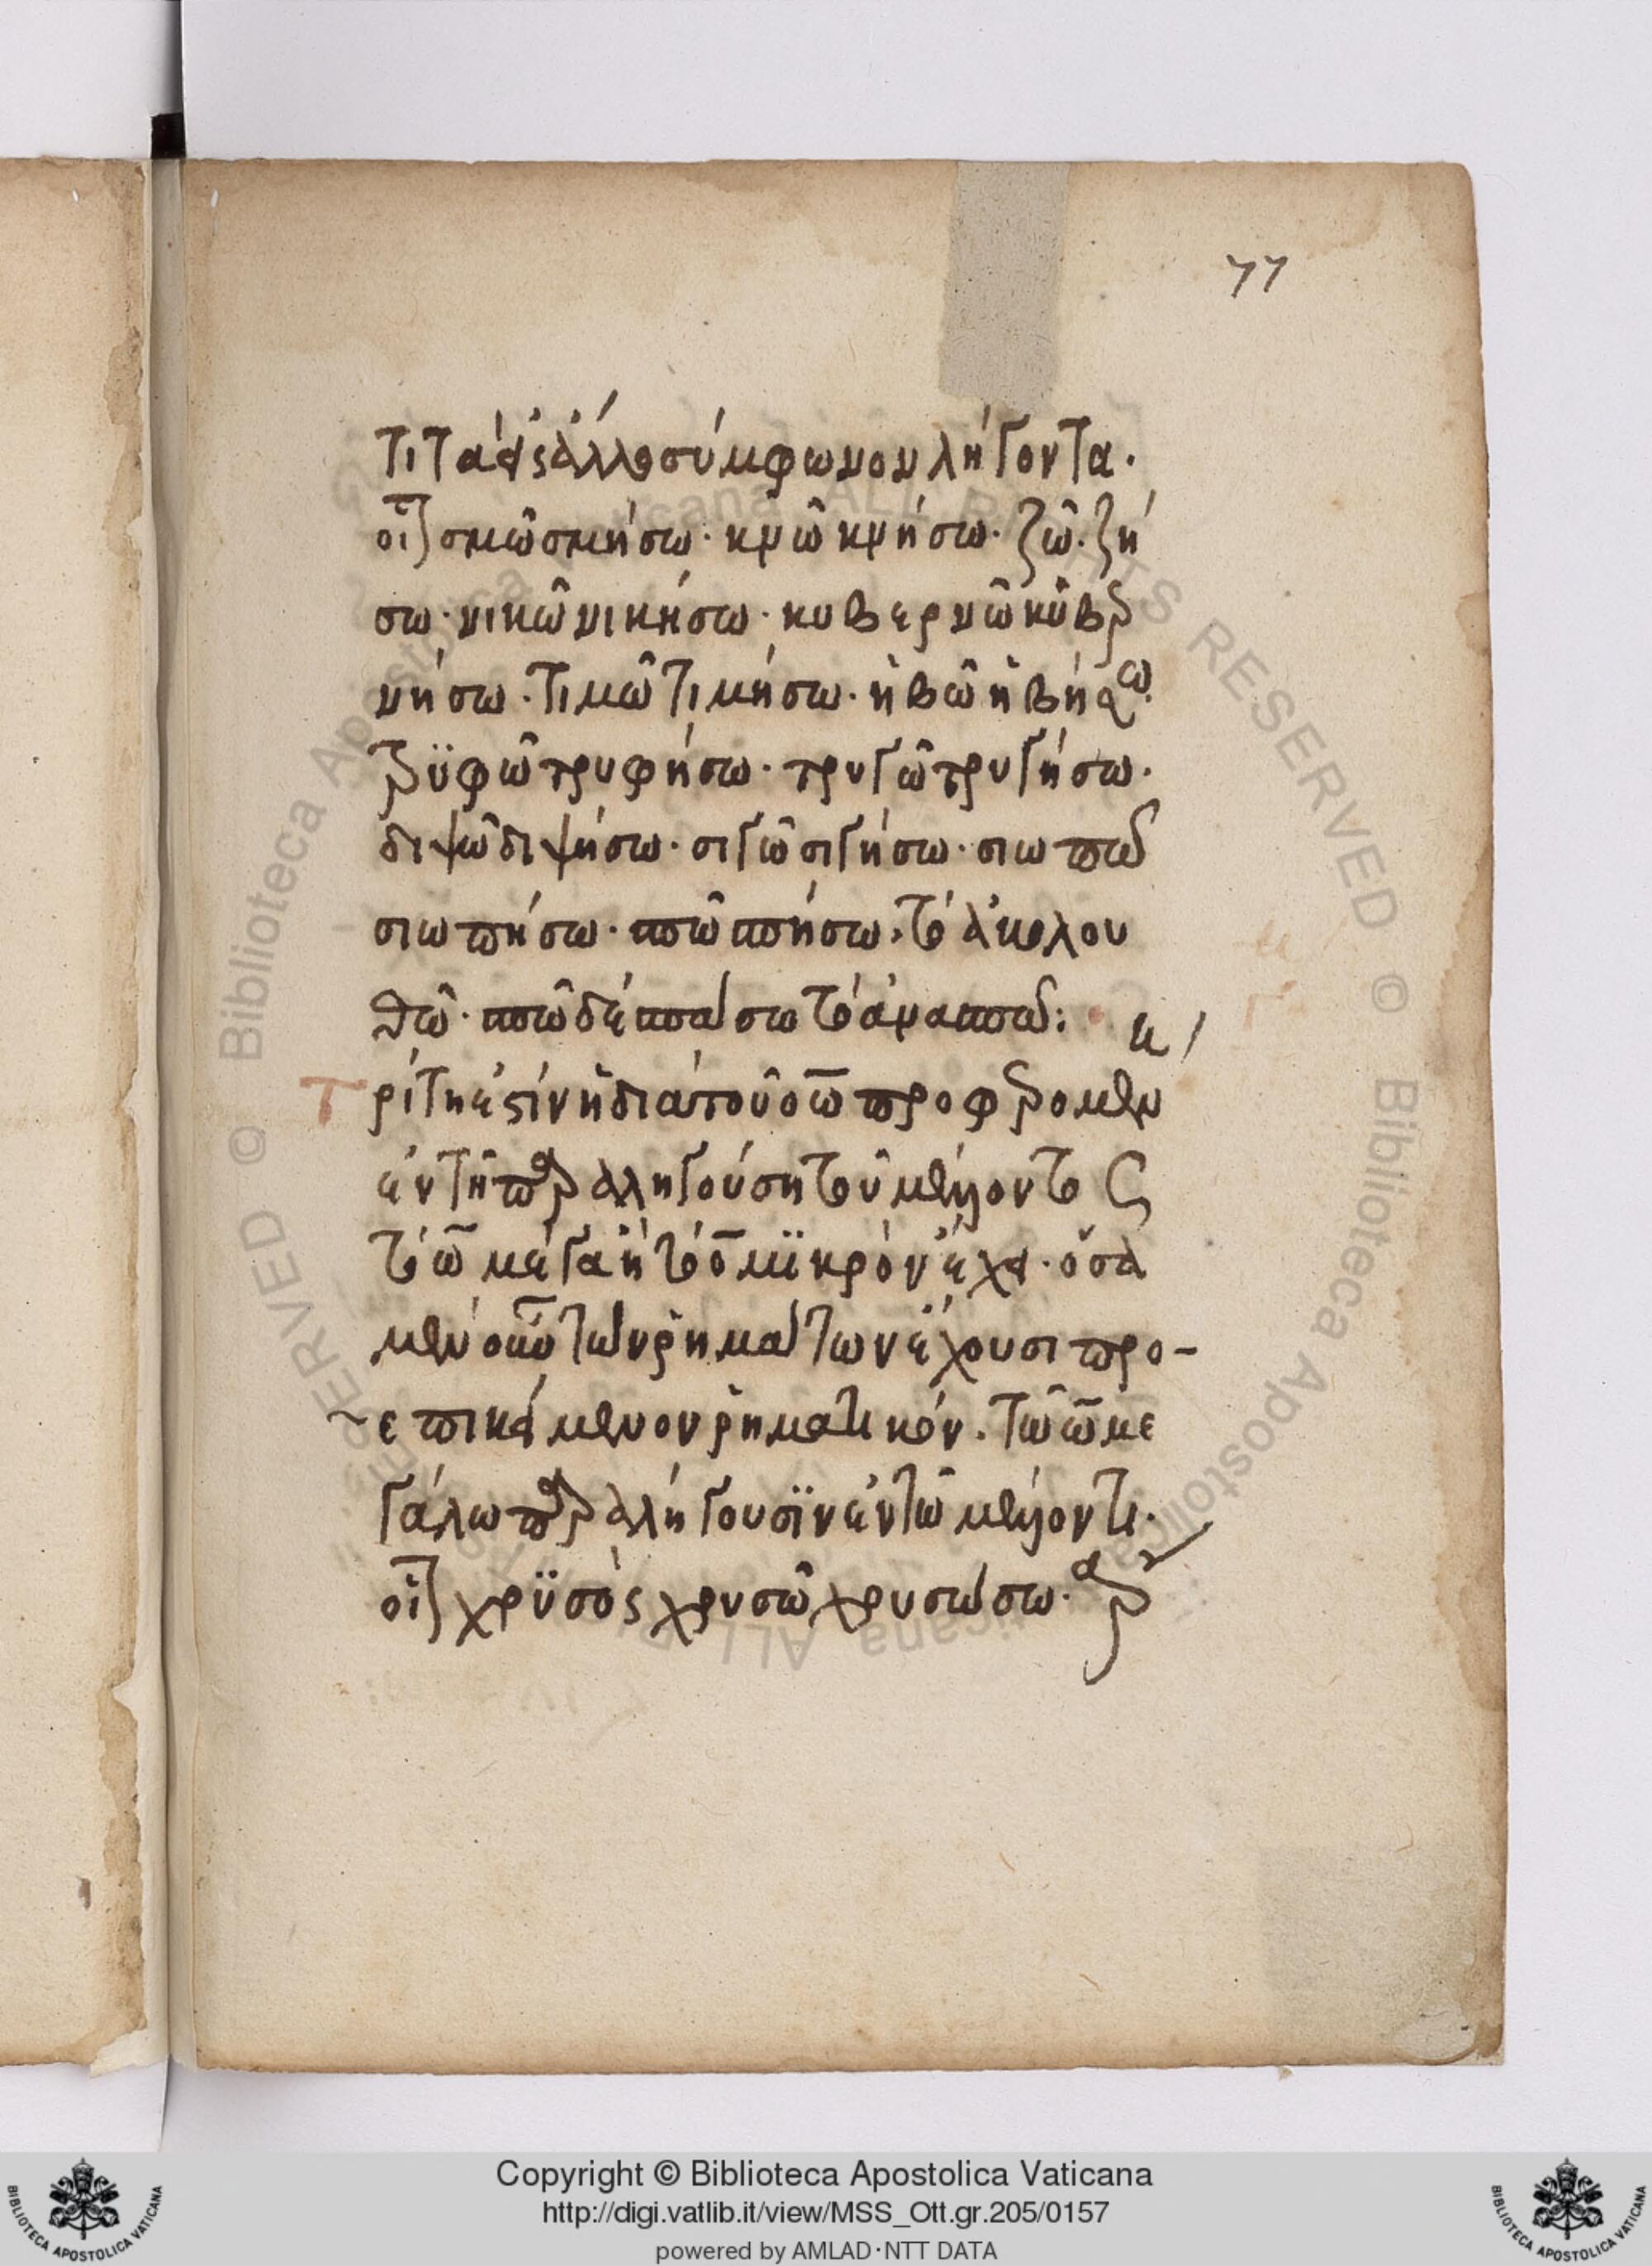 77
τι τὰ εἰς ἄλλο σύμφωνον λήγοντα.
οἷον σμῶ σμήσω· κνῶ κνήσω· ζῶ· ζή
σω· νικῶ νικήσω· κυβερνῶ κυβερ
νήσω· τιμῶ τιμήσω· ἡβῶ ἡβήσω·
τρϋφῶ τρυφήσω· τρυγῶ τρυγήσω·
διψῶ διψήσω· σιγῶ σιγήσω· σιωπῶ
σιωπήσω· σπῶ σπήσω· τὸ ἀκολου
θῶ· σπῶ δὲ σπάσω τὸ ἀνασπῶ:
Τρίτη ἐστὶν ἡ διὰ τοῦ οω προφερομένη
ἐν τῇ παραληγούσῃ τοῦ μέλλοντος
τὸ ω μέγα ἢ τὸ ο μϊκρὸν ἔχει· ὅσα
μὲν οὖν τῶν ῥημάτων ἔχουσι προ-
επικείμενον ῥηματικόν. τῷ ω με
γάλω παραλήγουσϊν ἐν τῷ μέλλοντι·
οἷον χρϋσὸς χρυσῶ χρυσώσω·
Biblioteca Apostolica Vicana ALL RIGHTS RESERVED ©
Copyright © Biblioteca Apostolica Vaticana
http://digi.vatlib.it/view/MSS_Ott.gr.205/0157
powered by AMLAD·NTT DATA
BIBLIOTECA APOSTOLICA VATICANA
BIBLIOTECA APOSTOLICA VATICANA